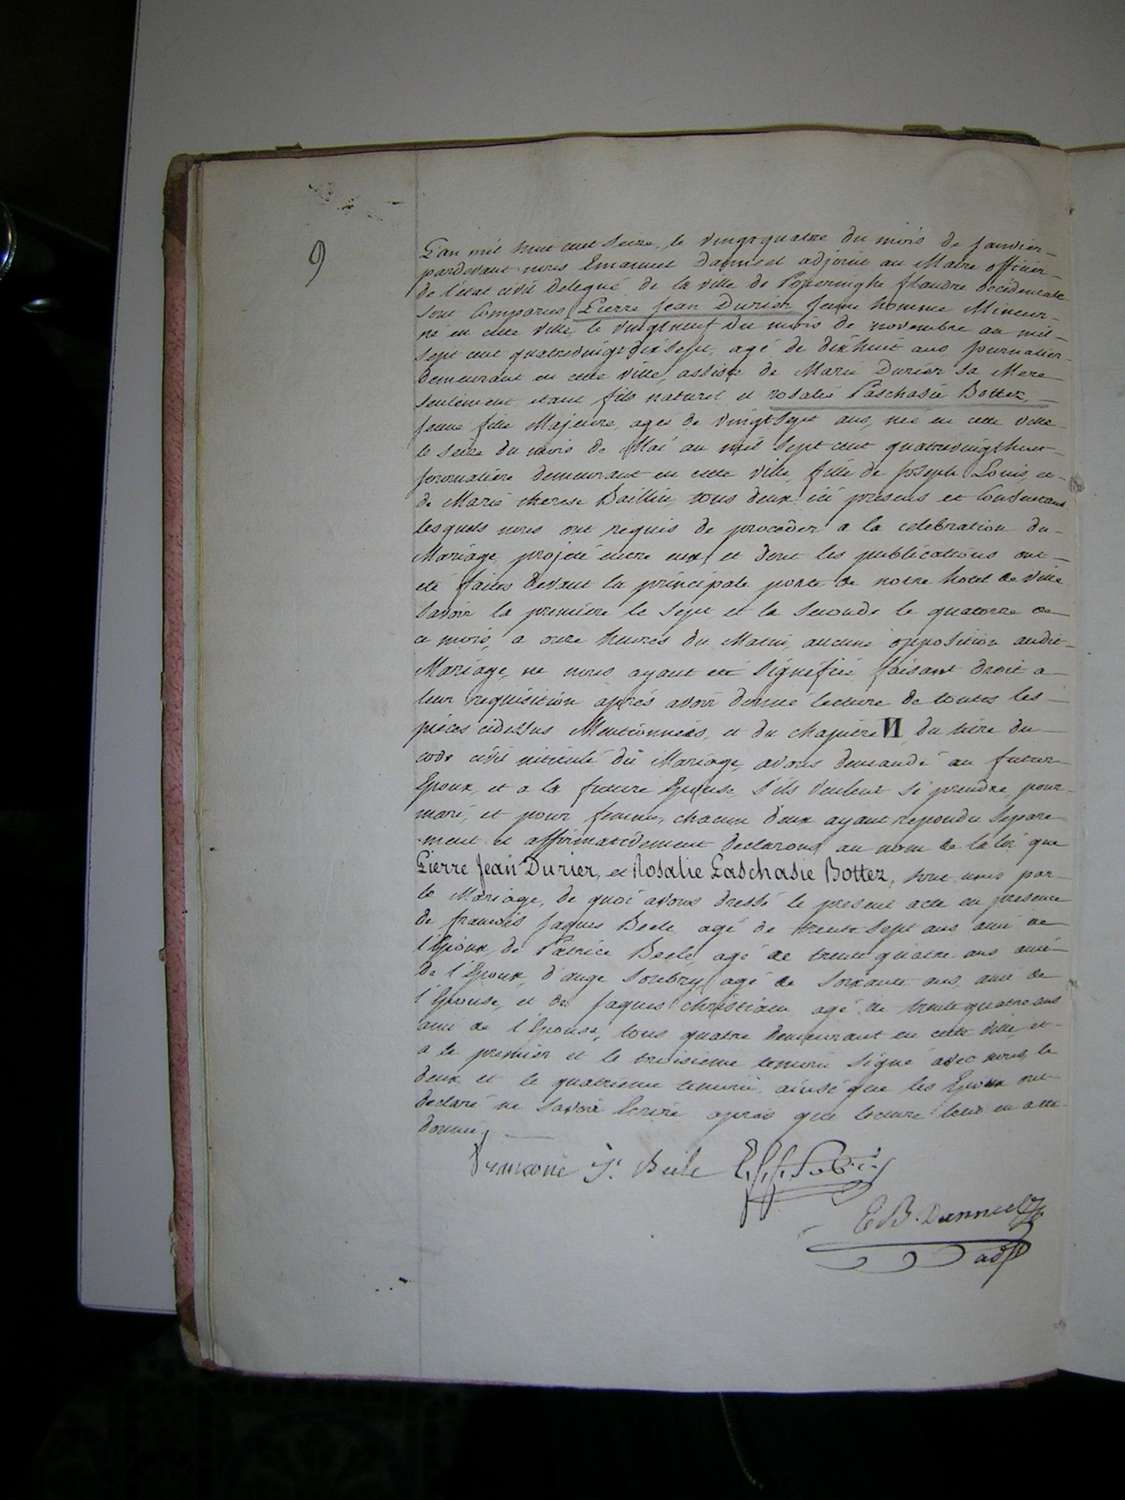 9
L'an mil huit cent seize, le vingtquatre du mois de Janvier
pardevant nous Emanuel Danneel adjoint au Maire officier
de l'état civil Delegué de la ville de Poperinghe flandre occidentale
sont Comparus Pierre Jean Durier Jeune homme Mineur
né en cette ville le vingtneuf du mois de novembre an mil
sept cent quatrevingt dix sept, agé de dixhuit ans, Journalier
demeurant en cette ville, assisté de Marie Durier sa Mere
seulement etant fils naturel et rosalie Paschasie Bottez,
Jeune fille Majeure, agée de vingt sept ans, née en cette ville
le seize du mois de Mai an mil sept cent quatrevingthuit
Journaliére demeurant en cette ville, fille de Joseph Louis, et
de Marie therese Baillieu, tous deux ici presens et Consentans
lesquels nous ont requis de proceder a la celebration du
Mariage projeté entre eux, et dont les publications ont
été faites devant la principale porte de notre hotel de ville
Savoir la premiére le sept et la seconde le quatorze de
ce mois, a onze heures du Matin, aucune opposition audit
Mariage ne nous ayant été Signifiée faisant droit a
leur requisition aprés avoir donné lecture de toutes les
piéces cidessus Mentionnées, et du chapitre VI, du titre du
code civil intitulé du Mariage, avons demandé au futur
Epoux, et a la future Epouse, s'ils veulent se prendre, pour
mari, et pour femme, chacun deux ayant repondu Separe
ment et affirmativement declarons au nom de la loi que
Pierre Jean Durier, et Rosalie Paschasie Bottez, sont unis par
le Mariage, de quoi avons dressé le present acte en presence
de francois Jaques Beele agé de trente sept ans ami de
l'Epoux, de Patrice Beele agé de trente quatre ans ami
de l'Epoux, d'ange Soubry agé de Soixante ans, ami de
l'Epouse, et de Jaques christiaen agé de trente quatre ans
ami de l'Epouse, tous quatre demeurant en cette ville, et
a le premier et le troisieme temoin Signé avec nous, le
deux et le quatrieme temoin ainsi que les Epoux ont
declaré ne savoir Ecrire aprés que lecture leur en a été
donné,
J. Beele
E B. Danneel
adj